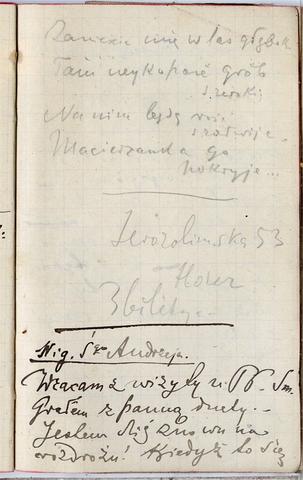 Zaniesie mię w las głęboki
Tam wykopane grób
szeroki
Na nim będą
Macierzanka go
pokryje...
Jerozolimska 53
Hoser
3 bilety.
Wig. Śgo Andrzeja.
Wracam z wizyty u PP. Sm.
Grałem z panną duety. -
Jestem dziś znowu na
rozdrożu! Kiedyż to się